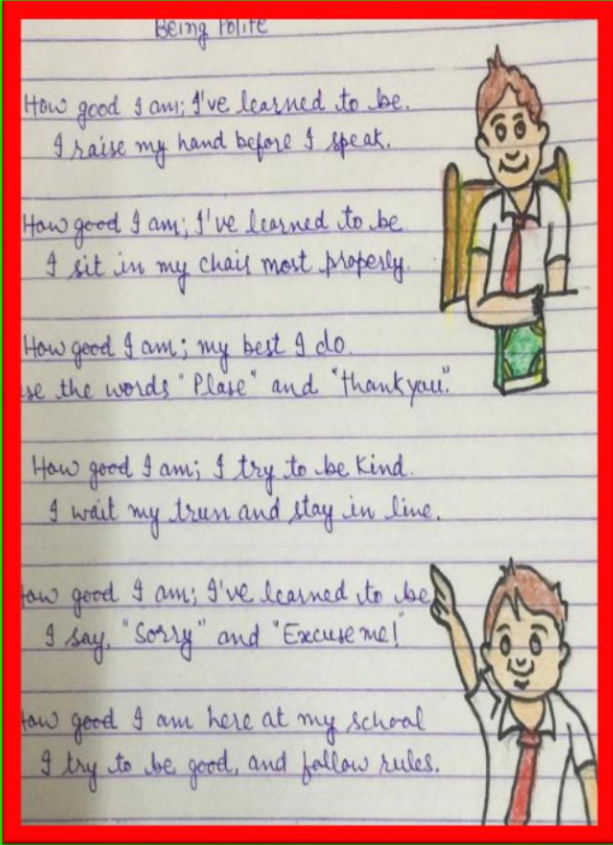 Being Polite
How good I am; I've learned to be.
I raise my hand before I speak.
How good I am; I've learned to be
I sit in my chair most properly.
How good I am; my best I do.
se the words "Plase" and "thank you".
How good I am; I try to be kind.
I wait my trun and stay in line.
How good I am; I've learned to be
I say, "Sorry" and "Excuse me!"
How good I am here at my school
I try to be good, and follow rules.